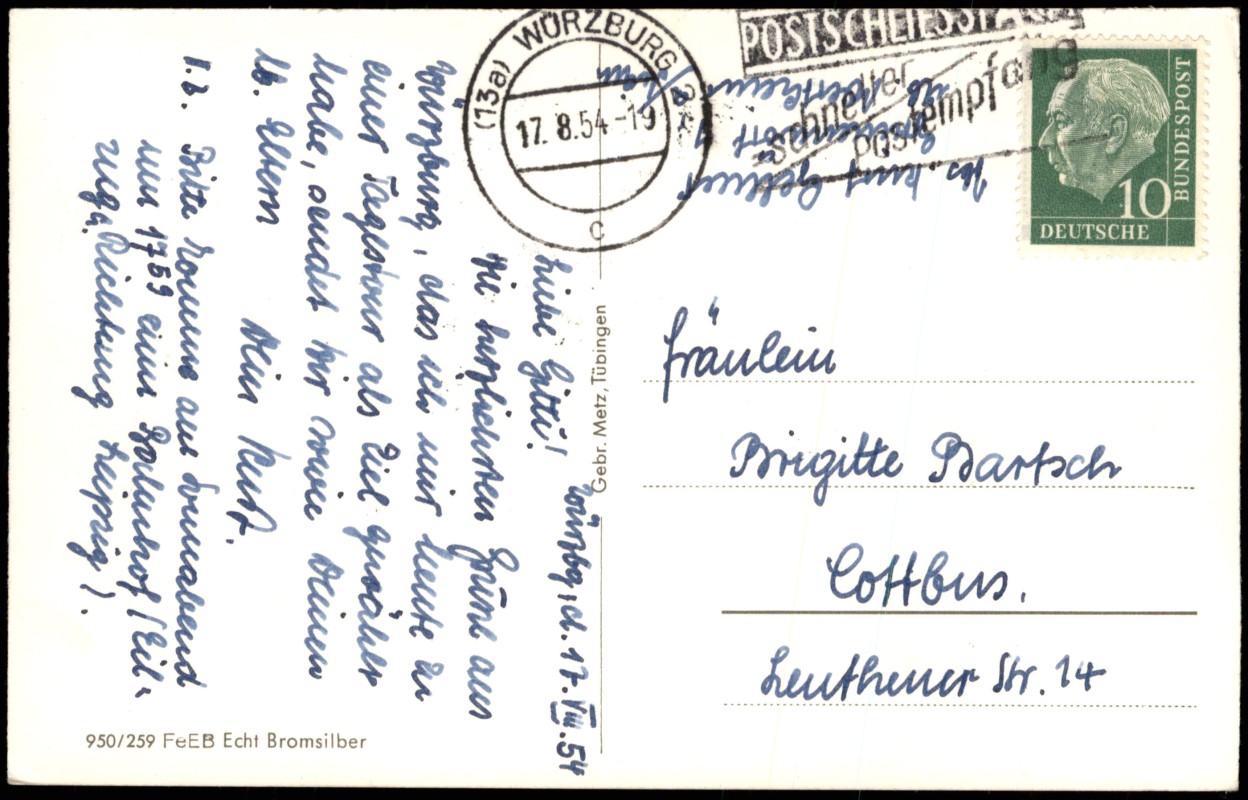 Würzbg, d. 17. VIII. 54
Liebe Gitti!
Die herzlichsten Grüße aus
Würzburg, das ich mir heute zu
einer Tagestour als Ziel gewählt
habe, sendet Dir sowie Deinen
lb. Eltern
Dein Kurt.
Bitte komme am Sonnabend
um 17⁵⁹ zum Bahnhof (Eil-
zug, Richtung Leipzig).
Abs. Kurt
WÜRZBURG 2
(13a)
17.8.54-19
c
POSTSCHLIESSFACH
schneller
Postempfang
10
DEUTSCHE
BUNDESPOST
Fräulein
Brigitte Bartsch
Cottbus.
Leuthener Str. 14
Gebr. Metz, Tübingen
950/259 FeEB Echt Bromsilber